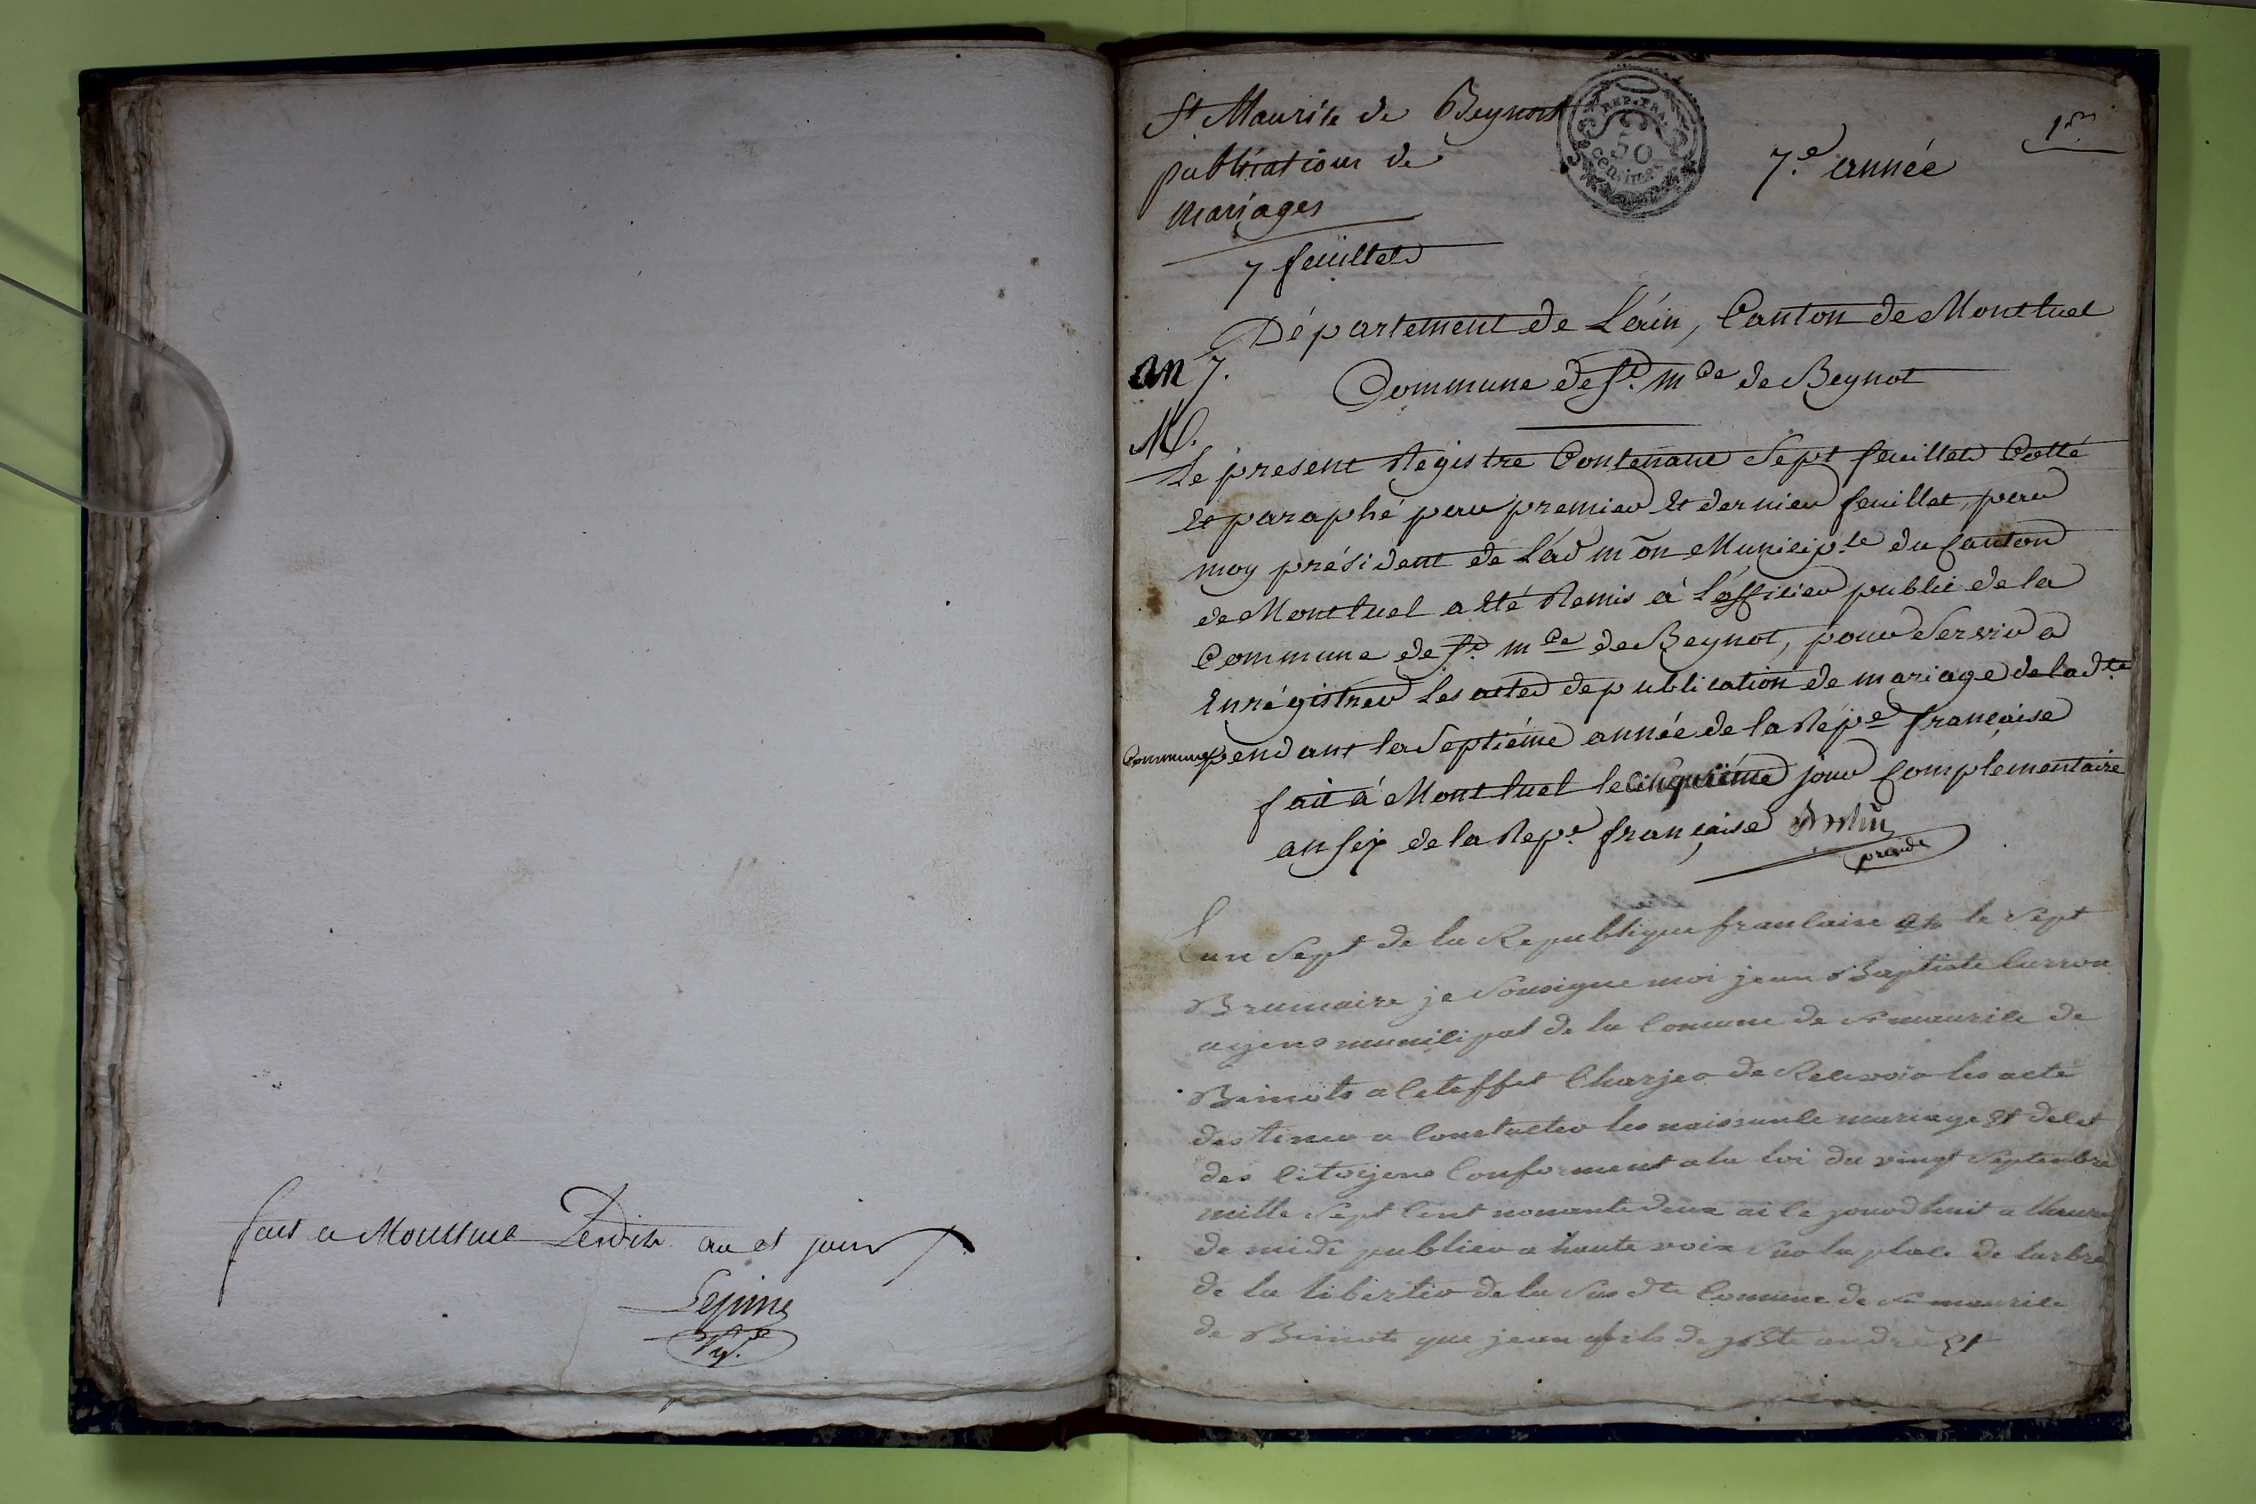 fait a Montluel Lesdits an et jour
Lepine
St. Maurise de Beynost
publications de
Mariages
7 feuillets
REP. FRA.
50
centimes
7.e année
1er
Département de L'ain, Canton de Montluel
an 7.
Commune de St. mce de Beynot
M.
Le present Régistre Contenant Sept feuillets Cotté
et paraphé par premier et dernier feuillet, par
moy président de L'adm̃on Municiple du Canton
de Montluel a été Remis à L'officier public de la
Commune de St. mce de Beynot, pour Servir a
Enrégistrer les actes de publication de mariage de la dte
Commune pendant la Septiéme année de la Répe française
fait á Montluel le cinquiéme jour Complementaire
an six de la Repe. française
presidt
Lan Sept de la Republique francaise et le Sept
Brumaire je Sousigne moi jean Baptiste Carron
agens municipal de la Comune de St maurice de
Beinots a Cet effet Charjer de Recevoir les acte
destiner a Constacter les naissance mariage Et deces
des Citoyens Conformement a la loi du vingt Septembre
mille Sept Cent nonante deux ai le jourdhuit a lheure
de midi publier a haute voix Sur la place de larbre
de la libertier de la Sus dte Comune de St maurice
de Beinots que jean fils de jBte andré Et